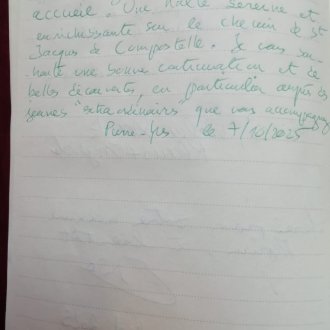 accueil. Une halte sereine et
enrichissante sur le chemin de St
Jacques de Compostelle. Je vous sou-
haite une bonne continuation et de
belles découvertes, en particulier auprès des
jeunes "extraordinaires" que vous accompagnez
Pierre-Yves le 7/10/2025